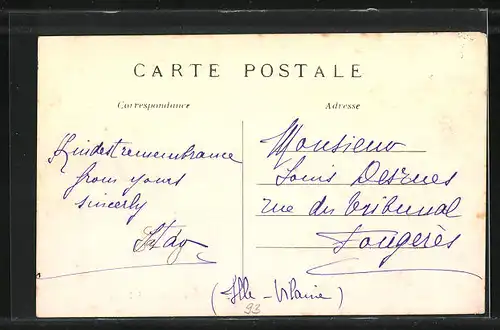 CARTE POSTALE
Correspondance
Adresse
Kindest remembrance
from yours
sincerly
Monsieur
Louis
rue du Tribunal
Fougères
(Ille-Vilaine)
93